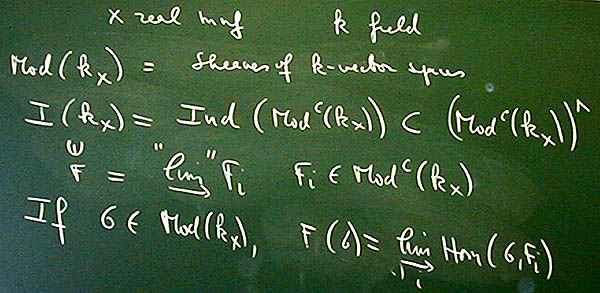 X real mnf k field
Mod(k_X) = Sheaves of k-vector spaces
I(k_X) = Ind(Mod^c(k_X)) ⊂ (Mod^c(k_X))^∧
∪
F = "lim→" F_i F_i ∈ Mod^c(k_X)
If G ∈ Mod(k_X), F(G) = lim→_i Hom(G, F_i)